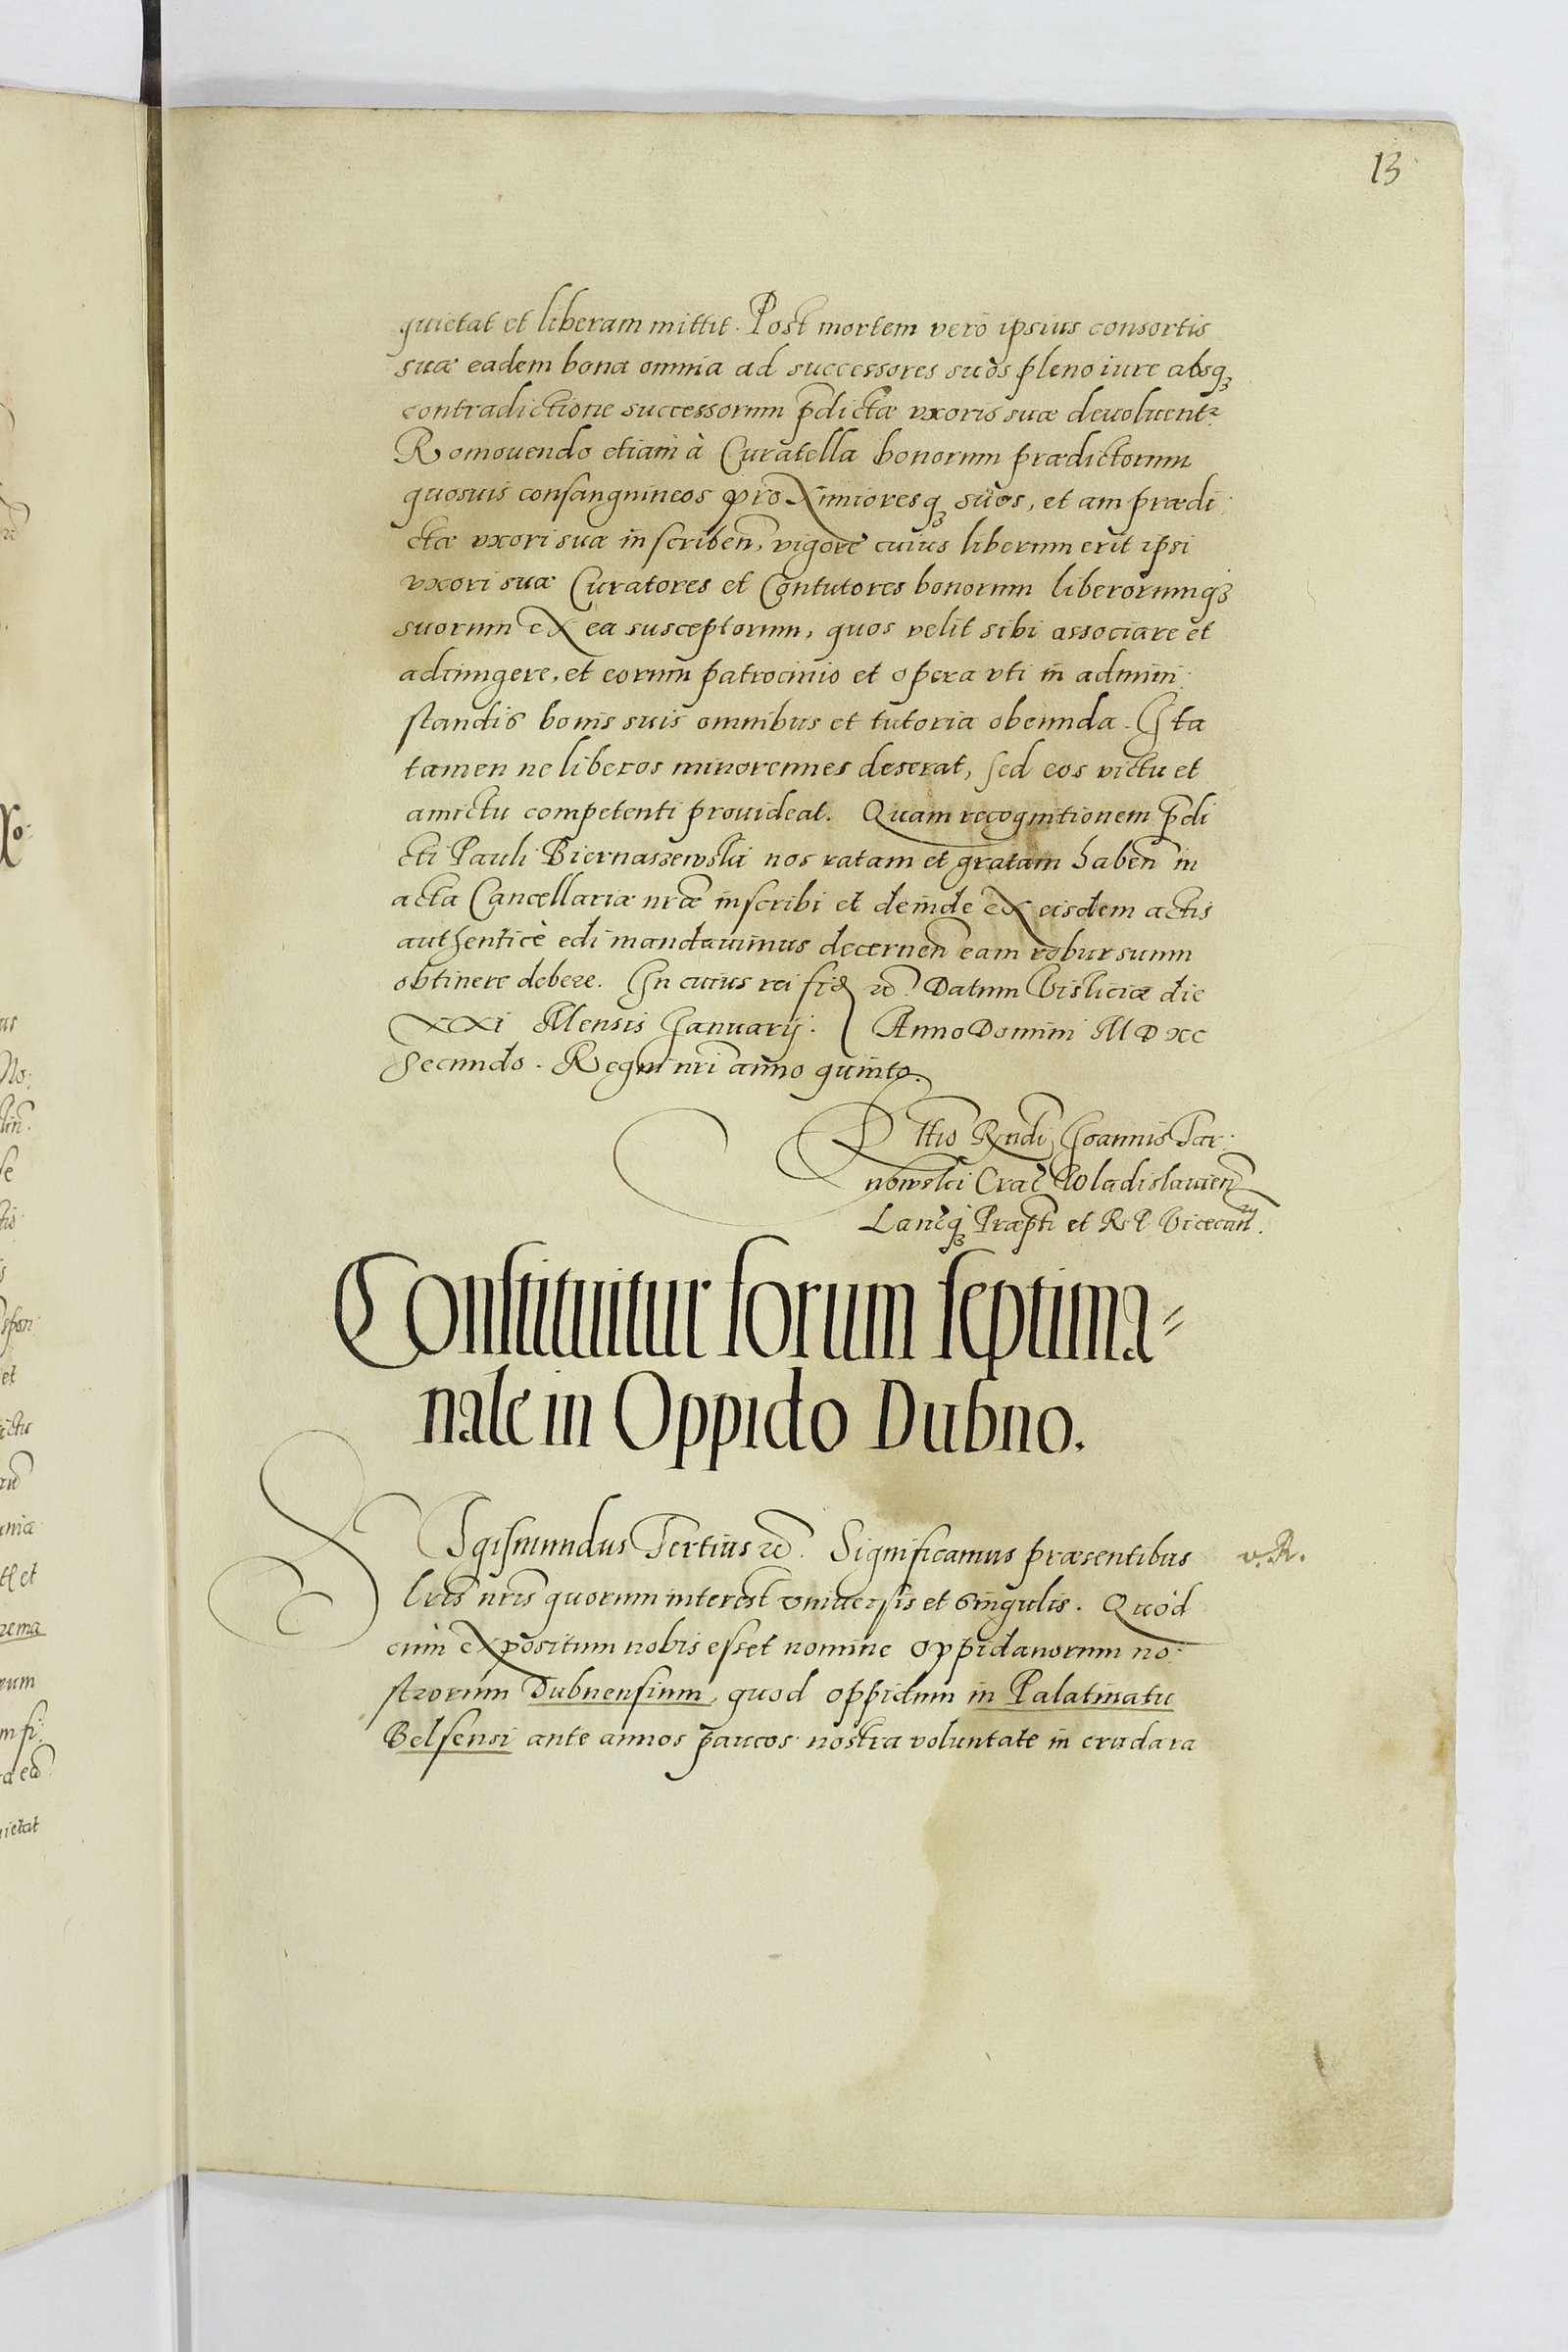 13
quietat et liberam mittit. Post mortem verò ipsius consortis
suæ eadem bona omnia ad successores suos pleno iure absqꝫ
contradictione successorum p̄dictæ vxoris suæ devoluentꝛ
Romouendo etiam à Curatella bonorum prædictorum
quosuis consanguineos proximioresqꝫ suos, et am prædi
ctæ vxori suæ inscriben̄, vigore cuius liberum erit ipsi
vxori suæ Curatores et Contutores bonorum liberorumqꝫ
suorum ex ea susceptorum, quos velit sibi associare et
adiungere, et eorum patrocinio et opera vti in admini:
standis bonis suis omnibus et tutoria obeunda. Ita
tamen ne liberos minorennes deserat, sed eos victu et
amictu competenti prouideat. Quam recognitionem p̄di
cti Pauli Biernaszewski nos ratam et gratam haben̄ in
acta Cancellariæ nr̄æ inscribi et deinde ex eisdem actis
authenticè edi mandauimus decernen̄ eam robur suum
obtinere debere. In cuius rei fid ꝛc̄. Datum Visliciæ die
XXI Mensis Januarij. Anno Domini M D XC
Secundo. Regni nr̄i anno quinto.
Rttio Rn̄di Joannis Tar:
nowski Crac̄ Wladislauien̄
Lanc̄qꝫ Præpti et R. P. Vicecan̄.
Constituitur forum septima=
nale in Oppido Dubno.
SIgismundus Tertius ꝛc̄. Significamus præsentibus
v. R.
lr̄is nr̄is quorum interest vniuersis et singulis. Quòd
cùm expositum nobis esset nomine oppidanorum no:
strorum Dubnensium, quod oppidum in Palatinatu
Belsensi ante annos paucos nostra voluntate in cruda ra